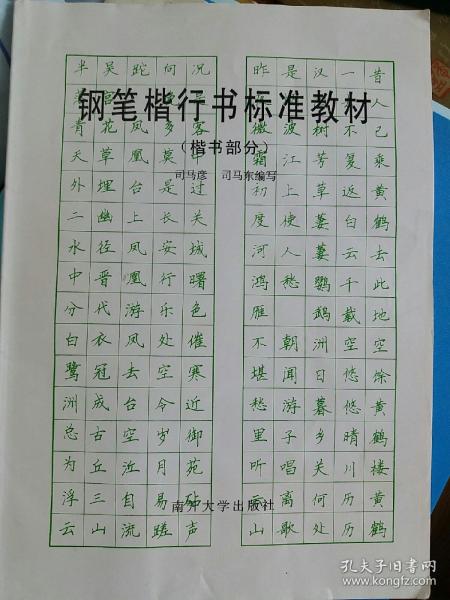 钢笔楷行书标准教材
（楷书部分）
司马彦　司马东编写
昔人已乘黄鹤去此地空馀黄鹤楼黄鹤
一不复返白云千载空悠悠晴川历历
汉树芳草萋萋鹦鹉洲日暮乡关何处
是波江上使人愁 朝闻游子唱离歌
昨微霜初度河鸿雁不堪愁里听云山
况客中过关城曙色催寒近御苑砧声
向多莫是长安行乐处空令岁月易蹉
跎凤凰台上凤凰游凤去台空江自流
吴宫花草埋幽径晋代衣冠成古丘三山
半青天外二水中分白鹭洲总为浮云
南开大学出版社
孔夫子旧书网
www.kongfz.com